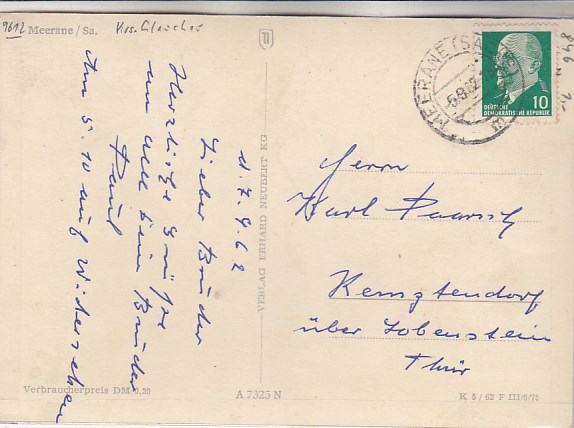 9612 Meerane / Sa. Krs. Glauchau
M. 7.9.62
Lieber Bruder
Herzliche Grüße
an alle dein Bruder
Paul
Am 5.10 auf Wiedersehen
Verbraucherpreis DM 0,20
VERLAG ERHARD NEUBERT KG
A 7325 N
MEERANE (SACHS)
DEUTSCHE
DEMOKRATISCHE REPUBLIK
10
Herrn
Karl Paarsch
über Lobenstein
Thür
K 5/62 F III/6/75